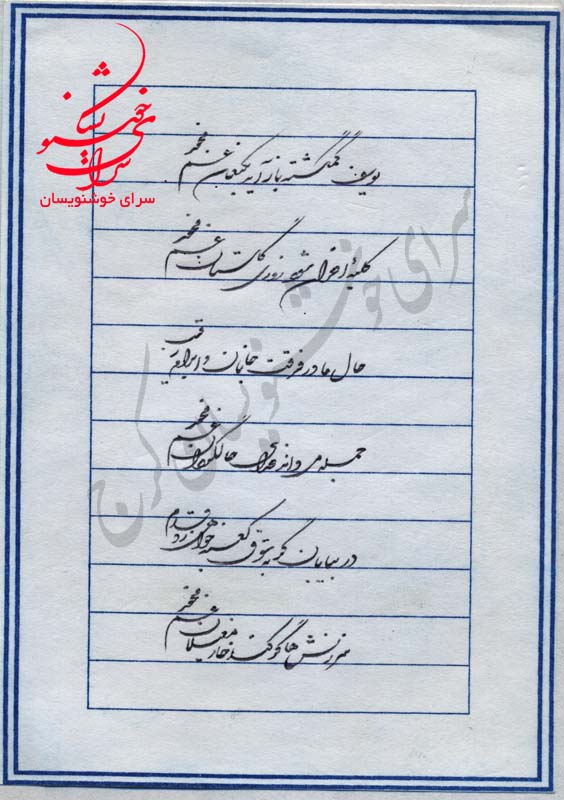 سرای خوشنویسان
سرای خوشنویسان
یوسف گمگشته باز آید بکنعان غم مخور
کلبهٔ احزان شود روزی گلستان غم مخور
حال ما در فرقت جانان و ابرام رقیب
جمله می داند خدای حال گردان غم مخور
در بیابان گر به شوق کعبه خواهی زد قدم
سرزنش ها گر کند خار مغیلان غم مخور
سرای خوشنویسان کرج